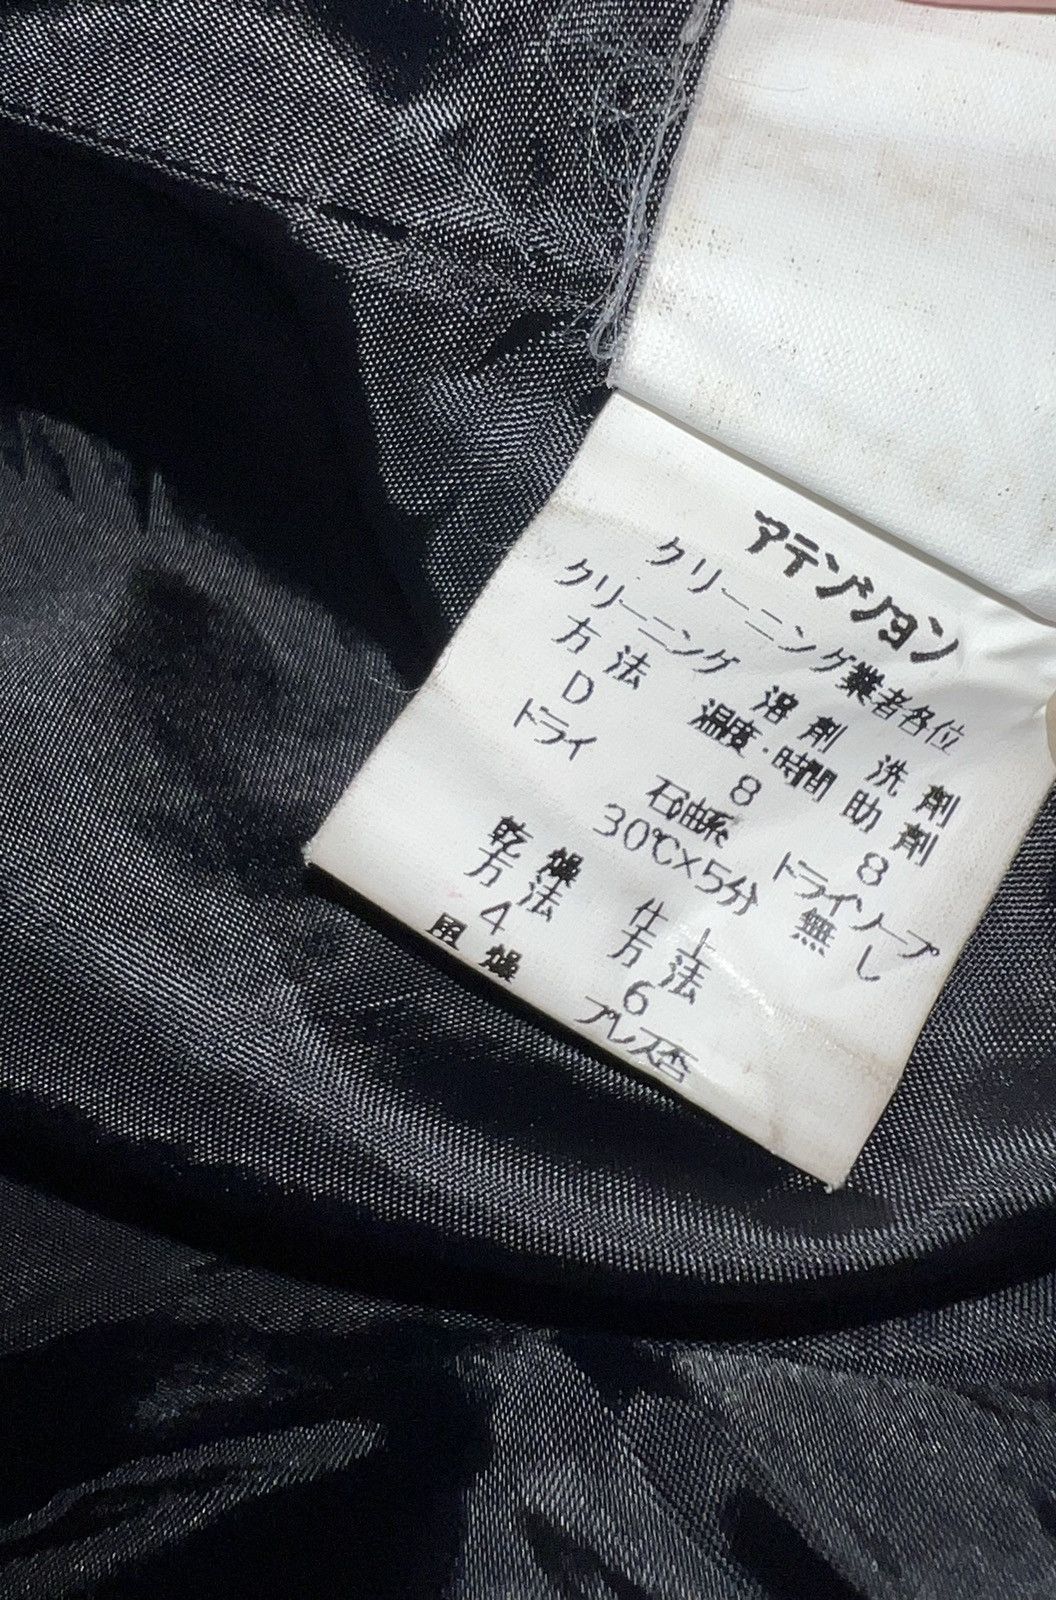 アテンション
クリーニング業者各位
クリーニング 溶剤 洗剤
方法 温度・時間 助剤
D 8 8
ドライ 石油系 ドライソープ
30℃×5分 無し
乾燥 仕上
方法 方法
4 6
風燥 プレス否